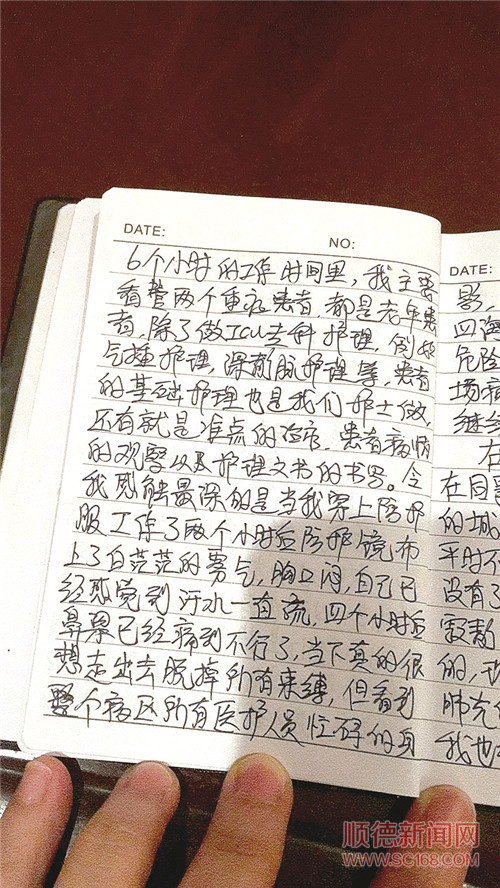 DATE:
NO:
6个小时的工作时间里，我主要
看管两个重症患者，都是老年患
者，除了做ICU专科护理，例如
气道护理，深静脉护理等，患者
的基础护理也是我们护士做，
还有就是准点的治疗、患者病情
的观察以及护理文书的书写。令
我感触最深的是当我穿上防护
服工作了两个小时后防护镜布
上了白茫茫的雾气，胸口闷，自己已
经感觉到汗水一直流，四个小时后
鼻梁已经痛到不行了，当下真的很
想走出去脱掉所有束缚，但看到
整个病区所有医护人员忙碌的身
DATE:
影，
四海
危险
场病
继续
在
在目
的城
平时不
没有
寂静
的，
肺炎
我也
顺德新闻网
www.SC168.com